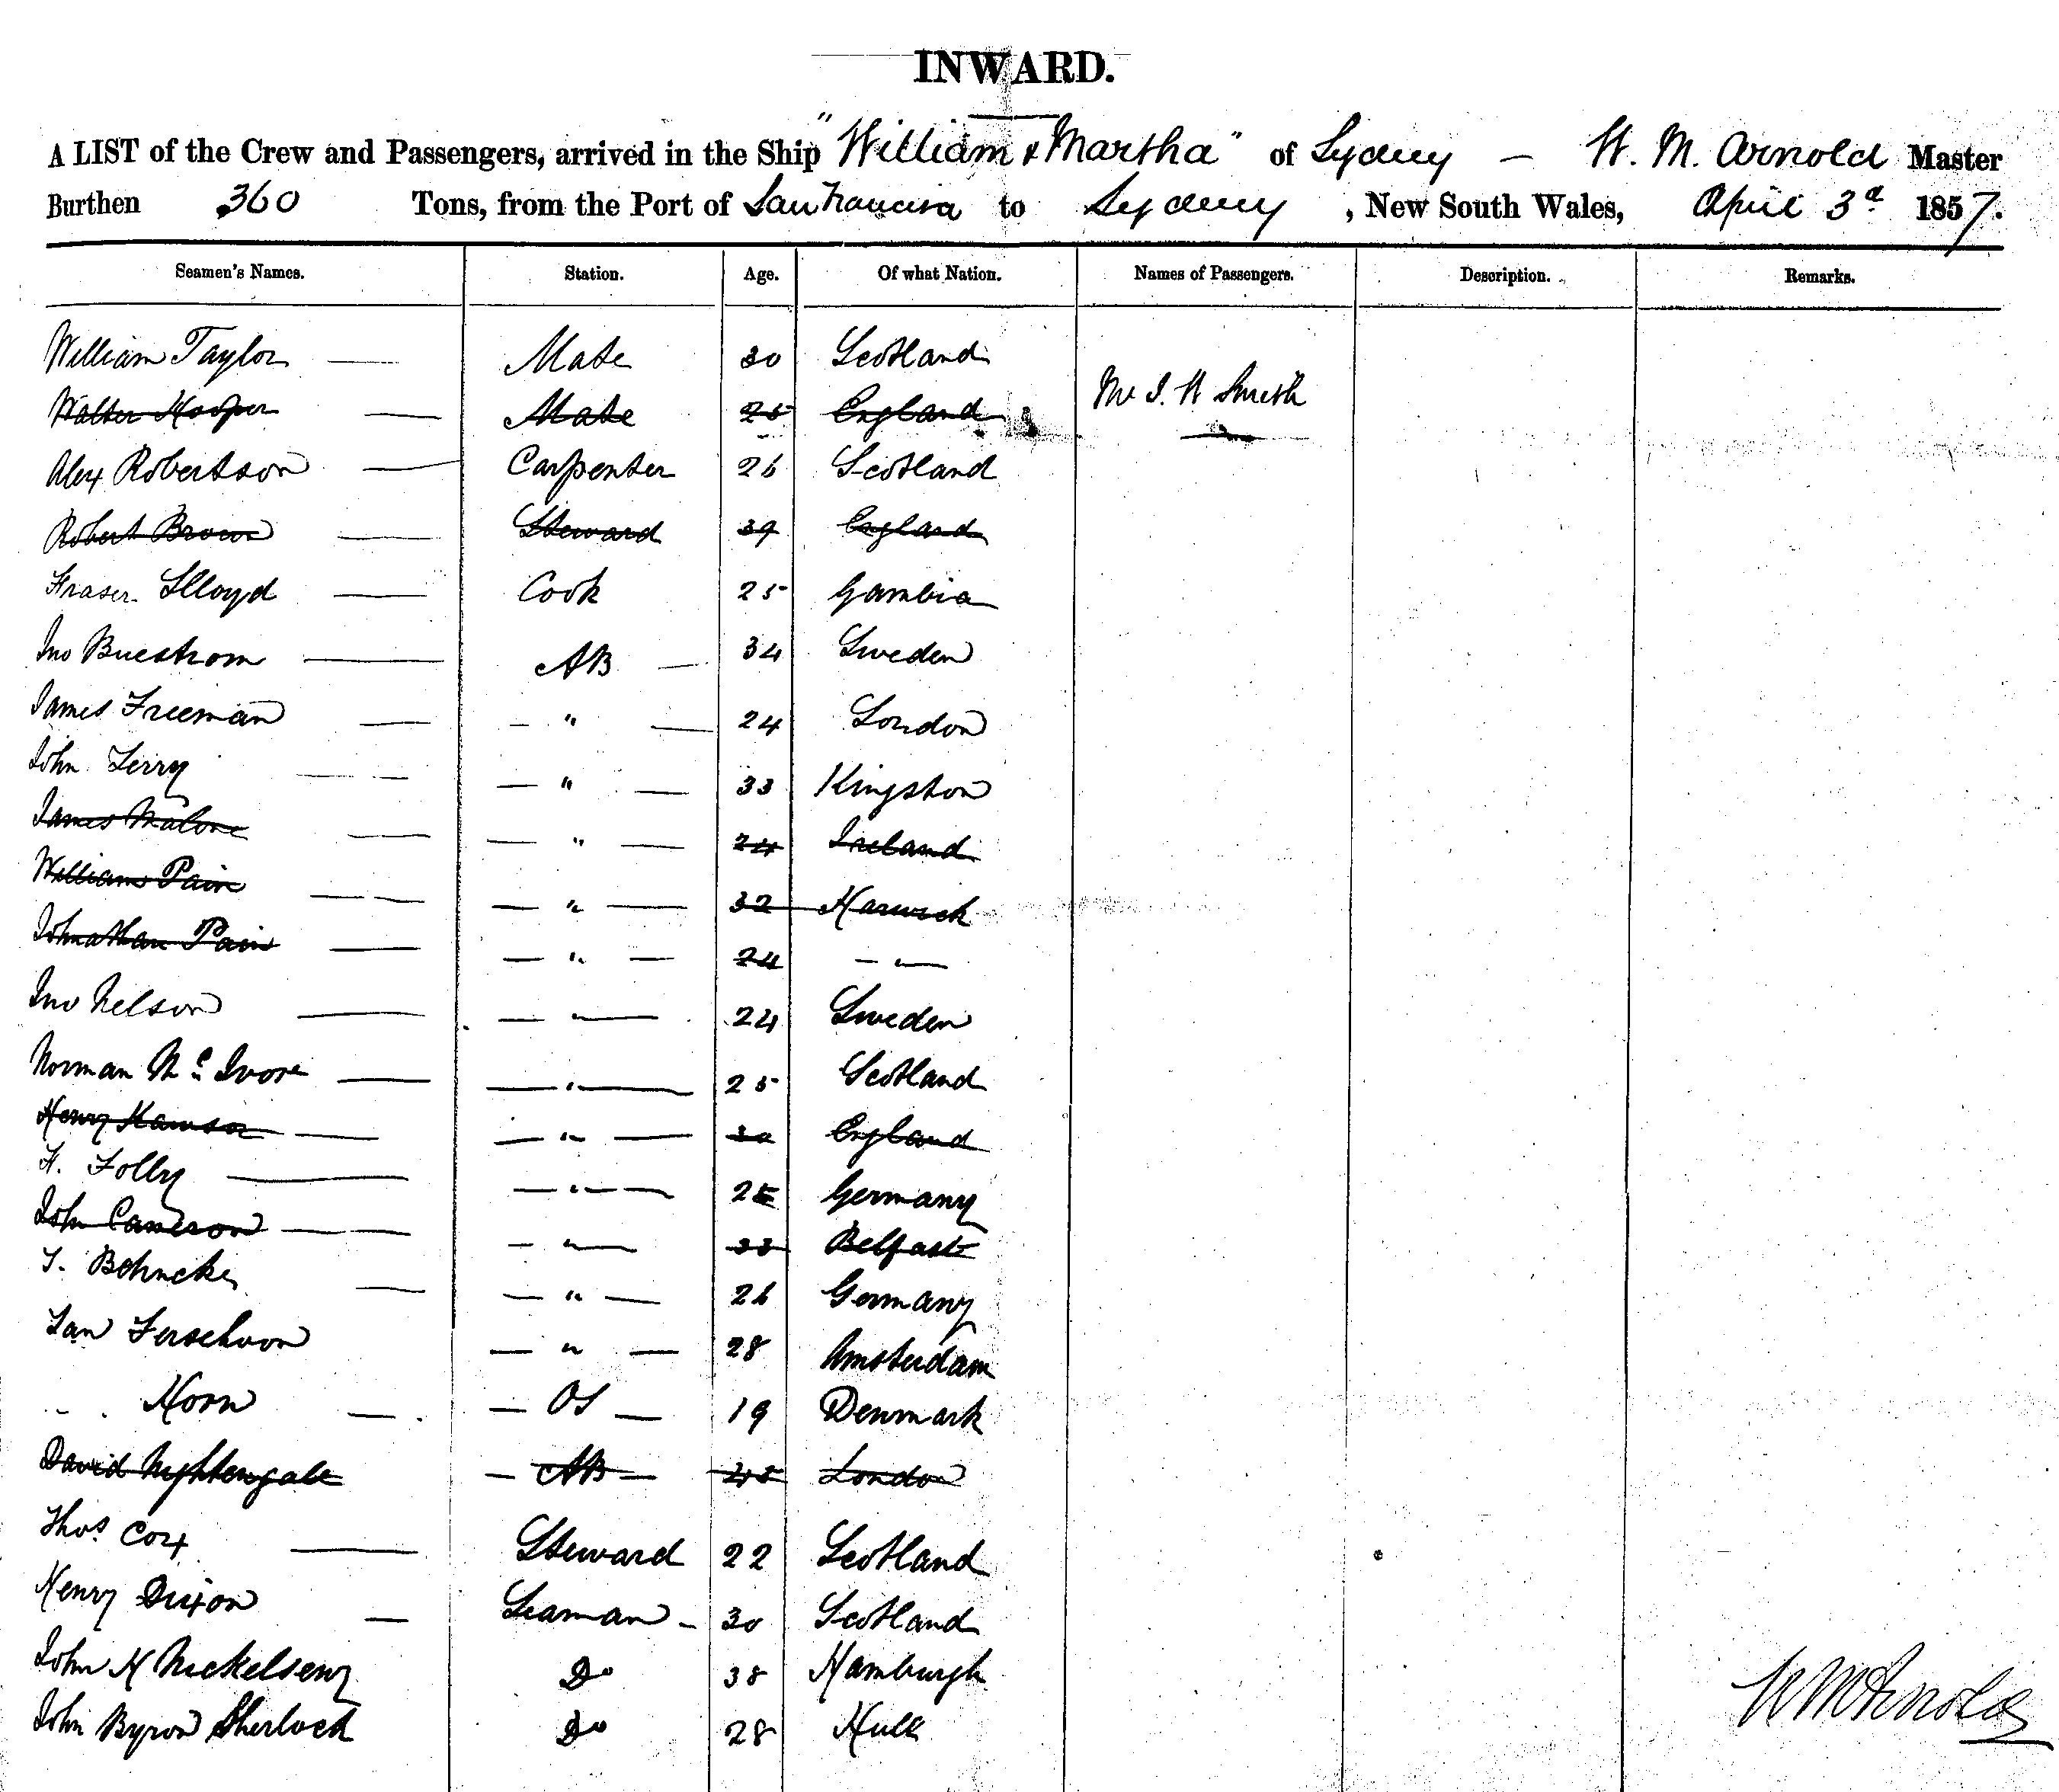 INWARD.
A LIST of the Crew and Passengers, arrived in the Ship "William & Martha" of Sydney — W. M. Arnold Master
Burthen 360 Tons, from the Port of San Francisco to Sydney, New South Wales, April 3d 1857.
Seamen's Names. Station. Age. Of what Nation. Names of Passengers. Description. Remarks.
William Taylor — Mate 30 Scotland
Mr J. H Smith
Walter Hooper — Mate 25 England
Alex Robertson — Carpenter 26 Scotland
Robert Brown — Steward 39 England
Fraser Lloyd — Cook 25 Gambia
Jno Buestrom — AB — 34 Sweden
James Freeman — — " — 24 London
John Terry — — " — 33 Kingston
James Malone — — " — 24 Ireland
William Pain — — " — 32 Harwich
Johnathan Pain — — " — 24 — " —
Jno Nelson — — " — 24 Sweden
Norman Mc Ivore — — " — 25 Scotland
Henry — — " — 30 England
H. Folly — — " — 25 Germany
John Cameron — — " — 33 Belfast
T. Bohncke — — " — 26 Germany
Jan — " — 28 Amsterdam
" Horn — — OS — 19 Denmark
David Nightengale — AB — 45 London
Thos Cox — Steward 22 Scotland
Henry Dixon — Seaman — 30 Scotland
John H Nickelseny Do 38 Hamburgh
John Byron Sherlock Do 28 Hull
W M Arnold